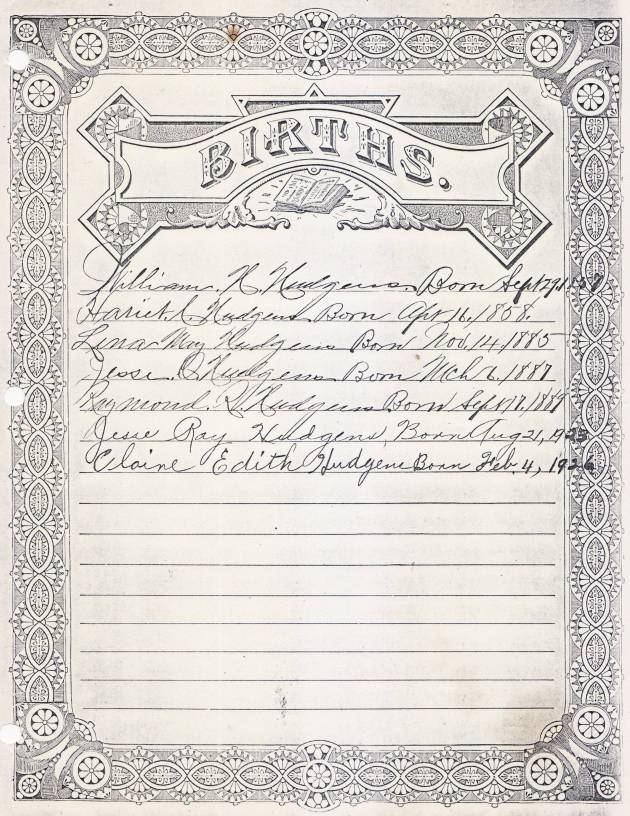 BIRTHS.
William. H. Hudgens. Born Sept 29, 1857
Hariet. Hudgens Born Apr 16. 1858.
Lena May Hudgens Born Nov. 14. 1885
Jesse. Hudgens Born Mch 6. 1887
Raymond. Hudgens Born Sept 17. 1889
Jesse Ray Hudgens, Born Aug 21, 1923
Claine Edith Hudgens Born Feb. 4, 1926